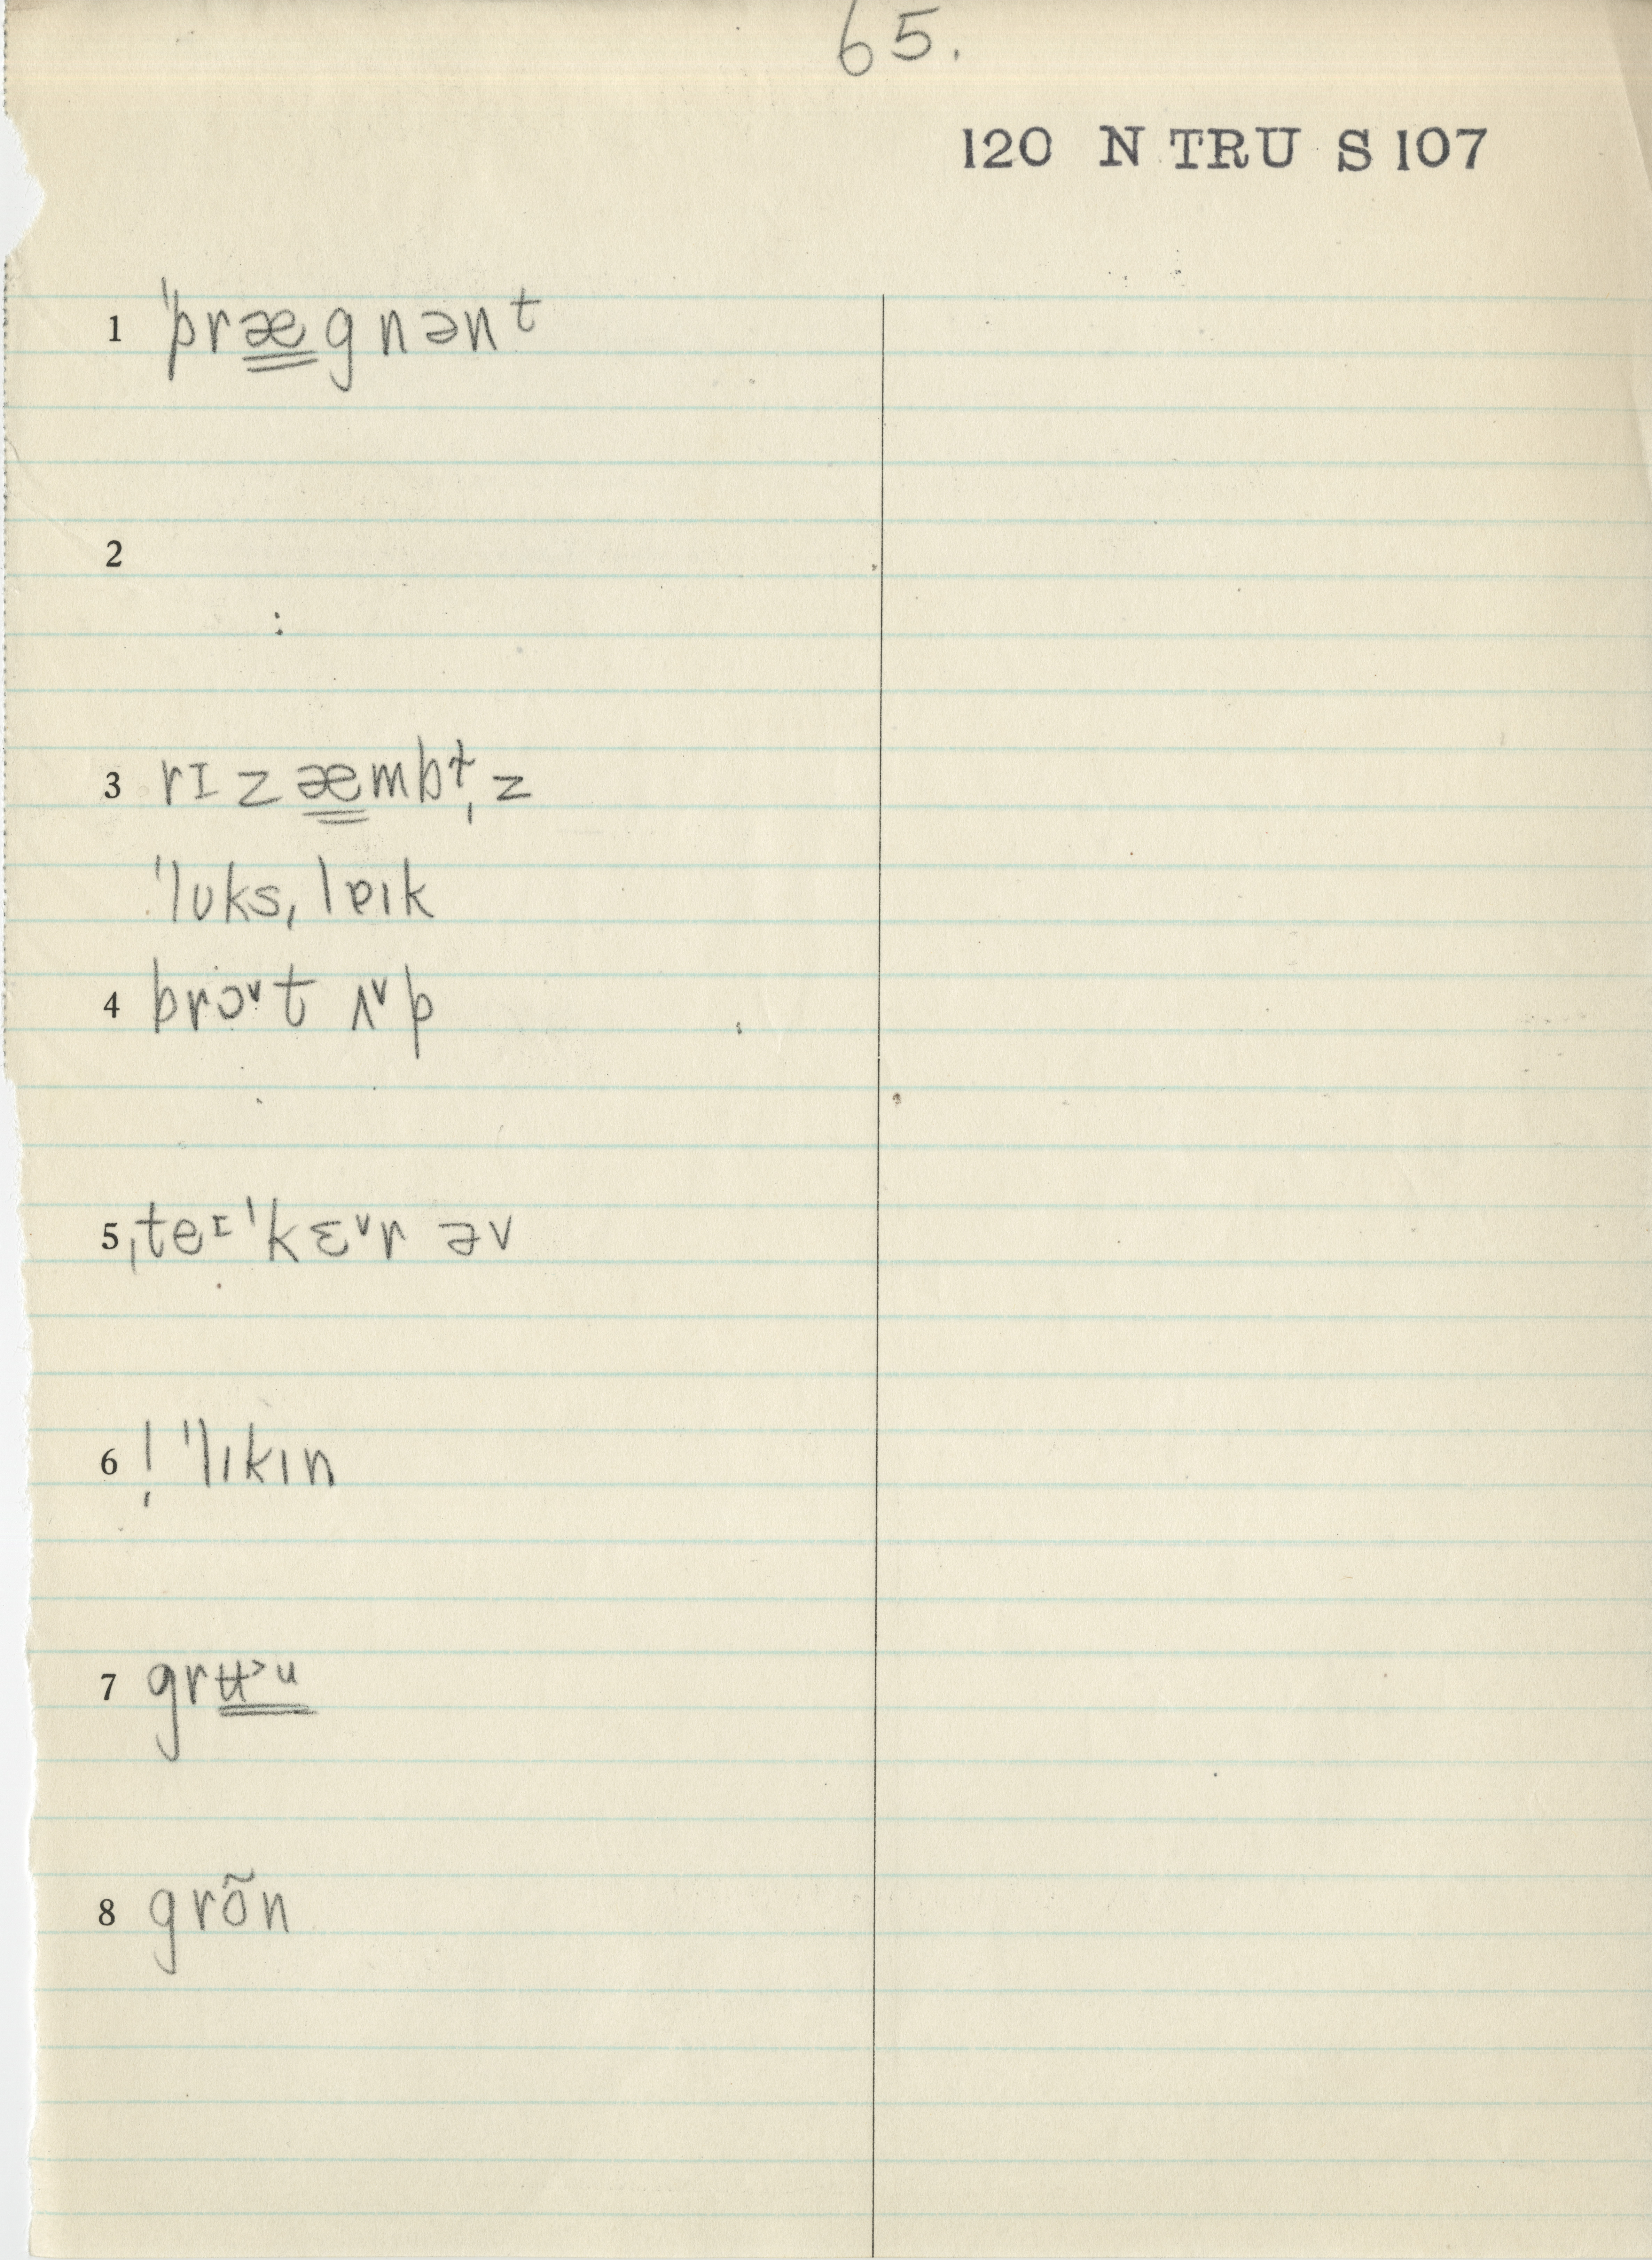 65.
120 N TRU S 107
1 ˈpræ̳gnənᵗ
2
3 rɪzæ̳mbɫ̩z
ˈlʊks ˌlɐɪk
4 brɔ˅t ʌ˅p
5 ˌteᶦˈkɛ˅r əv
6 ! ˈlɪkɪn
7 grʉ̳˃ᵘ
8 grõn